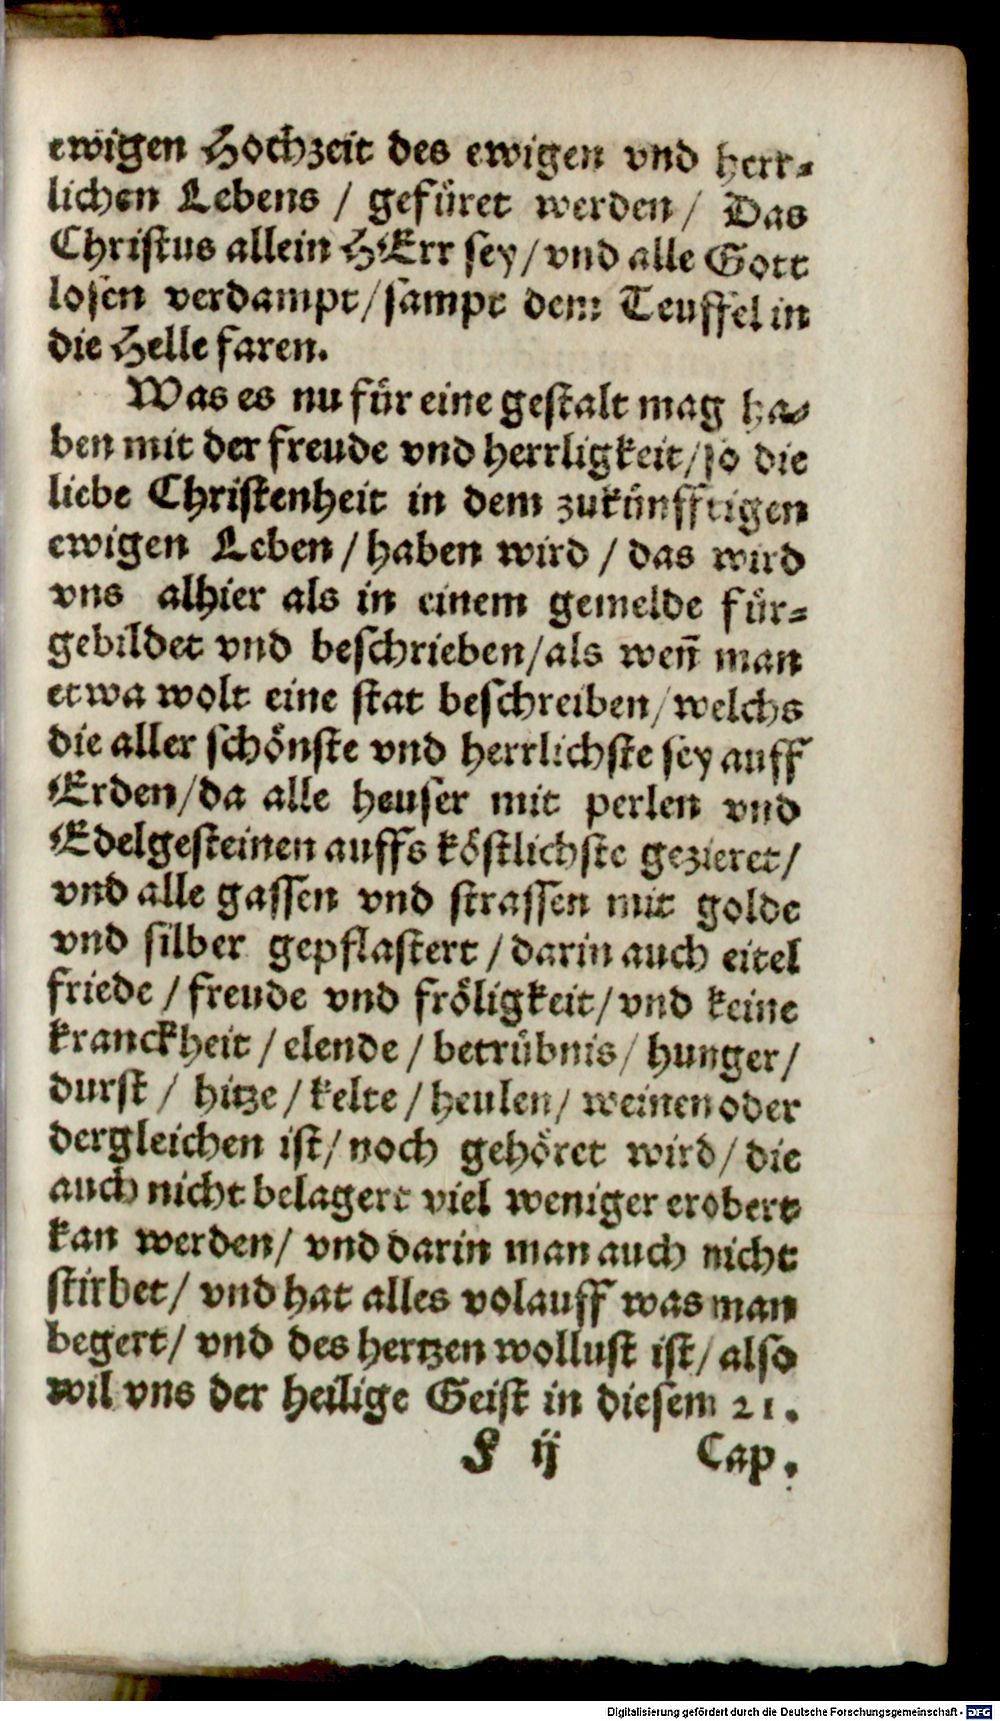 ewigen Hochzeit des ewigen vnd herr-
lichen Lebens / gefüret werden / Das
Christus allein HErr sey / vnd alle Gott
losen verdampt / sampt dem Teuffel in
die Helle faren.
Was es nu für eine gestalt mag ha-
ben mit der freude vnd herrligkeit / so die
liebe Christenheit in dem zukünfftigen
ewigen Leben / haben wird / das wird
vns alhier als in einem gemelde für-
gebildet vnd beschrieben / als weñ man
etwa wolt eine stat beschreiben / welchs
die aller schönste vnd herrlichste sey auff
Erden / da alle heuser mit perlen vnd
Edelgesteinen auffs köstlichste gezieret /
vnd alle gassen vnd strassen mit golde
vnd silber gepflastert / darin auch eitel
friede / freude vnd fröligkeit / vnd keine
kranckheit / elende / betrübnis / hunger /
durst / hitze / kelte / heulen / weinen oder
dergleichen ist / noch gehöret wird / die
auch nicht belagert viel weniger erobert
kan werden / vnd darin man auch nicht
stirbet / vnd hat alles volauff was man
begert / vnd des hertzen wollust ist / also
wil vns der heilige Geist in diesem 21.
F ij Cap.
Digitalisierung gefördert durch die Deutsche Forschungsgemeinschaft - DFG